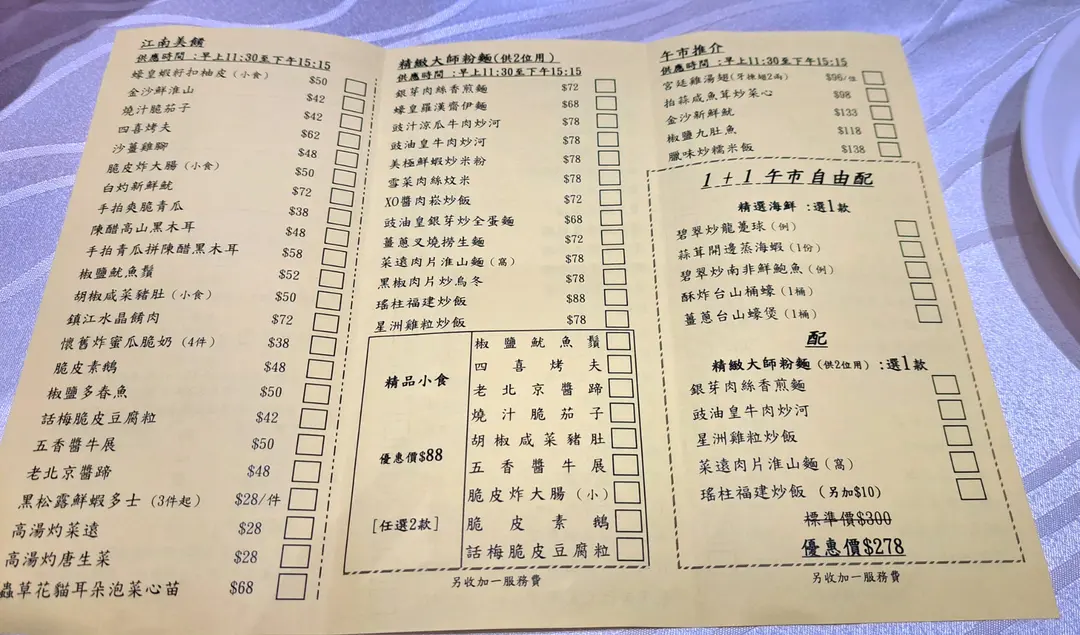 江南美餚
供應時間 :早上11:30至下午15:15
蠔皇蝦籽扣柚皮(小食) $50
金沙鮮淮山 $42
燒汁脆茄子 $42
四喜烤夫 $62
沙薑雞腳 $48
脆皮炸大腸(小食) $50
白灼新鮮魷 $72
手拍爽脆青瓜 $38
陳醋高山黑木耳 $48
手拍青瓜拼陳醋黑木耳 $58
椒鹽魷魚鬚 $52
胡椒咸菜豬肚(小食) $50
鎮江水晶餚肉 $72
懷舊炸蜜瓜脆奶(4件) $38
脆皮素鵝 $48
椒鹽多春魚 $50
話梅脆皮豆腐粒 $42
五香醬牛展 $50
老北京醬蹄 $48
黑松露鮮蝦多士(3件起) $28/件
高湯灼菜遠 $28
高湯灼唐生菜 $28
蟲草花貓耳朵泡菜心苗 $68
精緻大師粉麵(供2位用)
供應時間 :早上11:30至下午15:15
銀芽肉絲香煎麵 $72
蠔皇羅漢齋伊麵 $68
豉汁涼瓜牛肉炒河 $78
豉油皇牛肉炒河 $78
美極鮮蝦炒米粉 $78
雪菜肉絲炆米 $78
XO醬肉崧炒飯 $72
豉油皇銀芽炒全蛋麵 $68
薑蔥叉燒撈生麵 $72
菜遠肉片淮山麵(窩) $78
黑椒肉片炒烏冬 $78
瑤柱福建炒飯 $88
星洲雞粒炒飯 $78
精品小食
優惠價$88
[任選2款]
椒鹽魷魚鬚
四喜烤夫
老北京醬蹄
燒汁脆茄子
胡椒咸菜豬肚
五香醬牛展
脆皮炸大腸(小)
脆皮素鵝
話梅脆皮豆腐粒
另收加一服務費
午市推介
供應時間 :早上11:30至下午15:15
宮廷雞湯翅(牙揀翅2両) $96/位
拍蒜咸魚茸炒菜心 $98
金沙新鮮魷 $133
椒鹽九肚魚 $118
臘味炒糯米飯 $138
1+1午市自由配
精選海鮮 :選1款
碧翠炒龍躉球(例)
蒜茸開邊蒸海蝦(1份)
碧翠炒南非鮮鮑魚(例)
酥炸台山桶蠔(1桶)
薑蔥台山蠔煲(1桶)
配
精緻大師粉麵(供2位用) :選1款
銀芽肉絲香煎麵
豉油皇牛肉炒河
星洲雞粒炒飯
菜遠肉片淮山麵(窩)
瑤柱福建炒飯 (另加$10)
標準價$300
優惠價$278
另收加一服務費